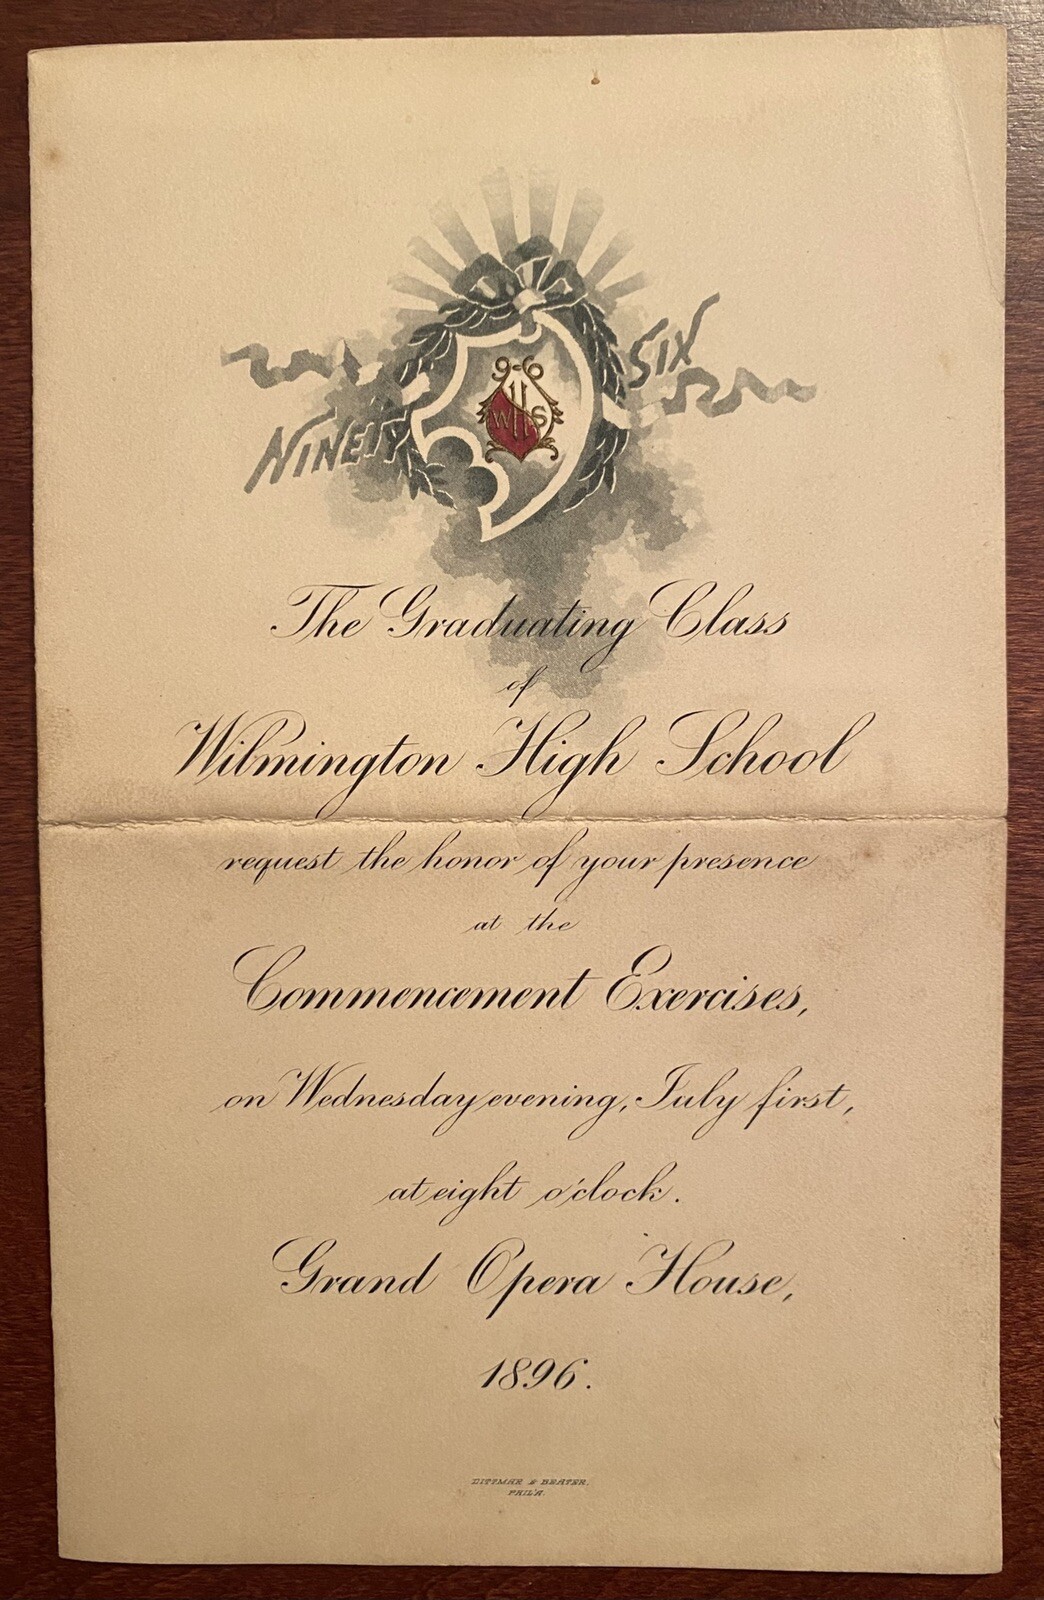 NINETY SIX
9-6
WHS
The Graduating Class
of
Wilmington High School
request the honor of your presence
at the
Commencement Exercises,
on Wednesday evening, July first,
at eight o'clock.
Grand Opera House,
1896.
DITTMAR & BEATER.
PHIL'A.